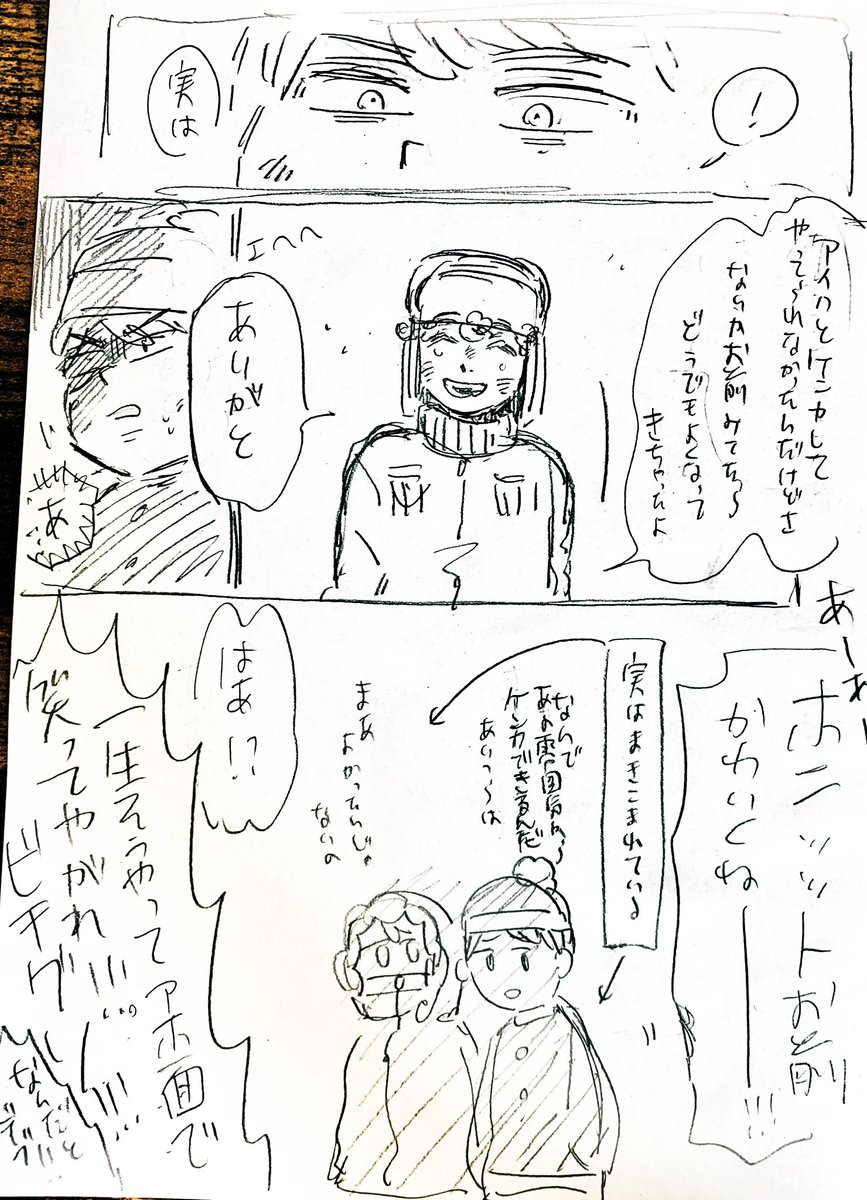 !
実は
アイツとケンカして
やってられなかったんだけどさ
なんかお前みてたら
どうでもよくなって
きちゃったよ
エヘヘ
ありがと
あ
あーれー
ホンッットお前
かわいくね
ーーー!!!
実はまきこまれている
なんで
あの雰囲気から
ケンカできるんだ
あいつらは
まあ
よかったんじゃ
ないの
はあ!?
一生そうやってアホ面で
笑ってやがれ!!!
ビチグ
なんだと
デブ!!